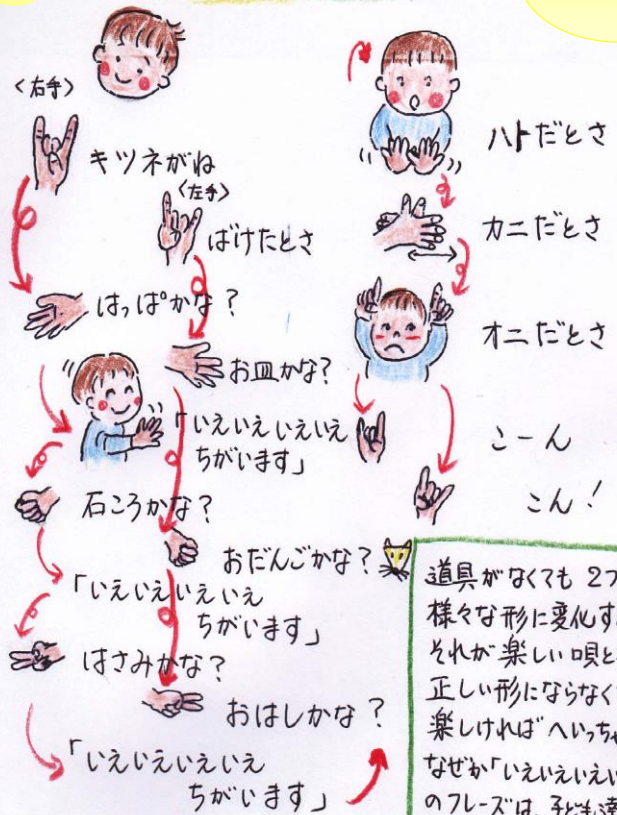 〈右手〉
キツネがね
〈左手〉
ばけたとさ
はっぱかな?
お皿かな?
「いえいえいえいえ
ちがいます」
石ころかな?
おだんごかな?
「いえいえいえいえ
ちがいます」
はさみかな?
おはしかな?
「いえいえいえいえ
ちがいます」
ハトだとさ
カニだとさ
オニだとさ
こーん
こん!
道具がなくても2つ
様々な形に変化す
それが楽しい唄と
正しい形にならなく
楽しければへいっちゃ
なぜか「いえいえいえい
のフレーズは、子ども達